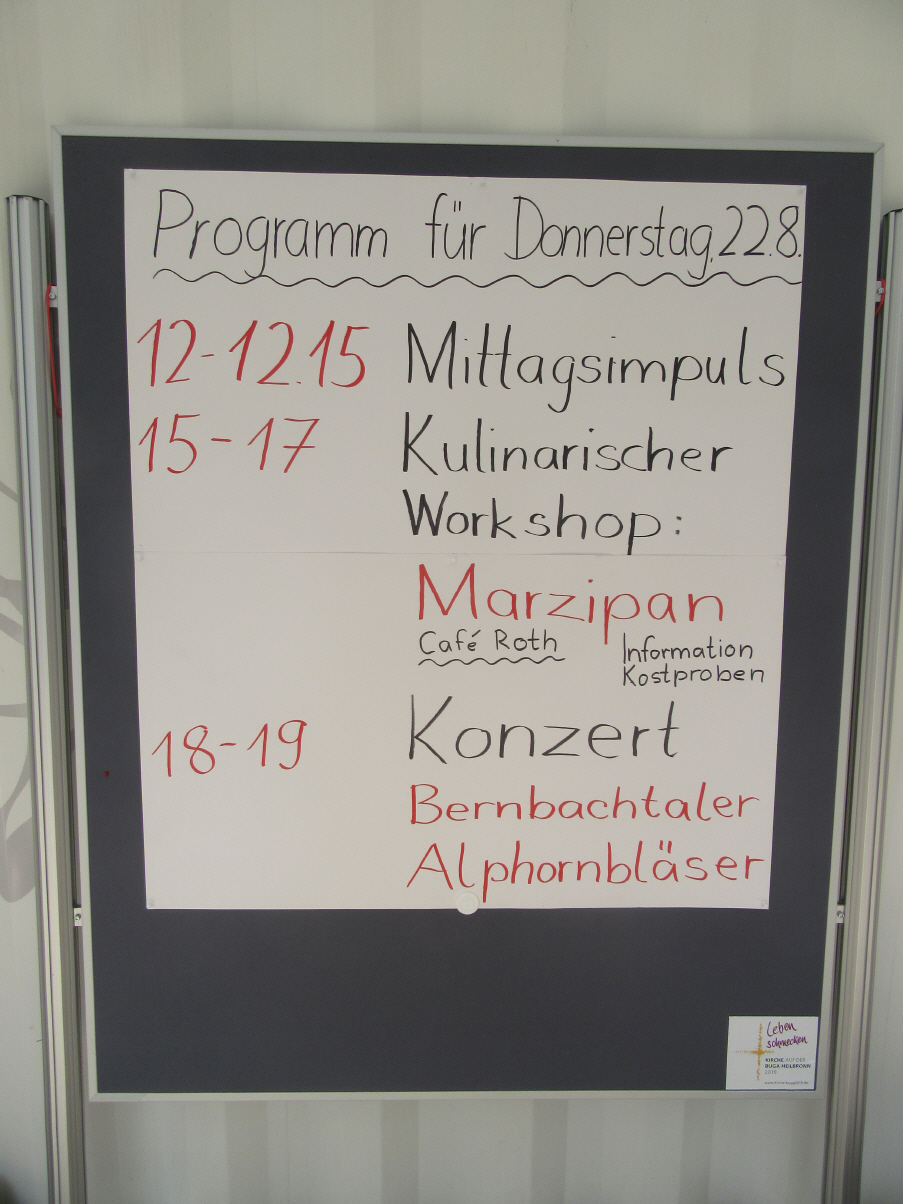 Programm für Donnerstag, 22.8.
12-12.15 Mittagsimpuls
15-17 Kulinarischer
Workshop:
Marzipan
Café Roth Information
Kostproben
18-19 Konzert
Bernbachtaler
Alphornbläser
Leben
schmecken
KIRCHE AUF DER
BUGA HEILBRONN
2019